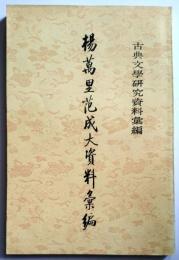 古典文學研究資料彙編
楊萬里范成大資料彙編